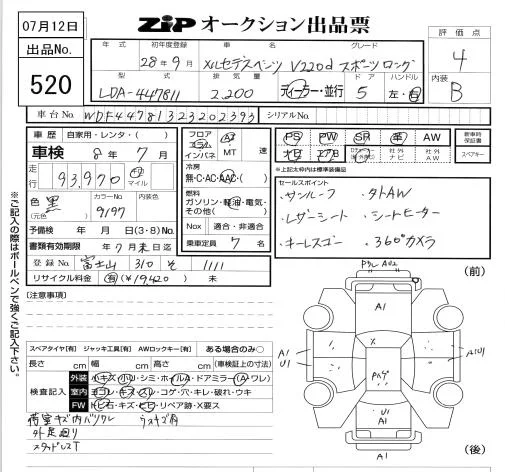 07月12日
ZIP オークション出品票
出品No.
520
年式 初年度登録 車名 グレード
28年9月 メルセデスベンツ V220d スポーツ ロング
型式 排気量 ドア ハンドル
LDA-447811 2.200 ディーラー・並行 5 左・右
評価点
4
内装
B
車台No. WDF44781323202393 シリアルNo.
車歴 自家用・レンタ・( )
車検 8年 7月
走行 93,970 km マイル
色 黒 (元色) カラーNo. 9197 内装色
予備検 年 月 日(3・8)No.
書類有効期限 年 7月 末日迄
登録No. 富士山 310 そ 1111
リサイクル料金 有(¥19,420) 未
フロア コラム インパネ AT MT 速
冷房 無・C・AC・AAC・( )
燃料 ガソリン・軽油・電気・その他( )
Nox 適合・非適合
乗車定員 7 名
PS PW SR 革 AW
ナビ TV エアB 社外ナビ 社外AW
新車時保証書
スペアキー
※上記太枠内は標準装備品
セールスポイント
・サンルーフ ・外AW
・レザーシート ・シートヒーター
・キーレスゴー ・360°カメラ
※ご記入の際はボールペンで強くご記入下さい。
[注意事項]
スペアタイヤ[有] ジャッキ工具[有] AWロックキー[有] ある場合のみ○
長さ cm 幅 cm 高さ cm (車検証上の寸法)
検査記入
外装 小キズ・小凹・シミ・ホイルA・ドアミラー(A・ワレ)
室内 ヨゴレ・キズ・スレ・コゲ・穴・キレ・破れ・ウキ
FW トビ石・キズ・ヒビ・リペア跡・X要ス
荷室キズ 内バリワレ
外足廻り
スタッドレスT
(前)
A1
A1
U1
X
U1
A1
A1
(後)